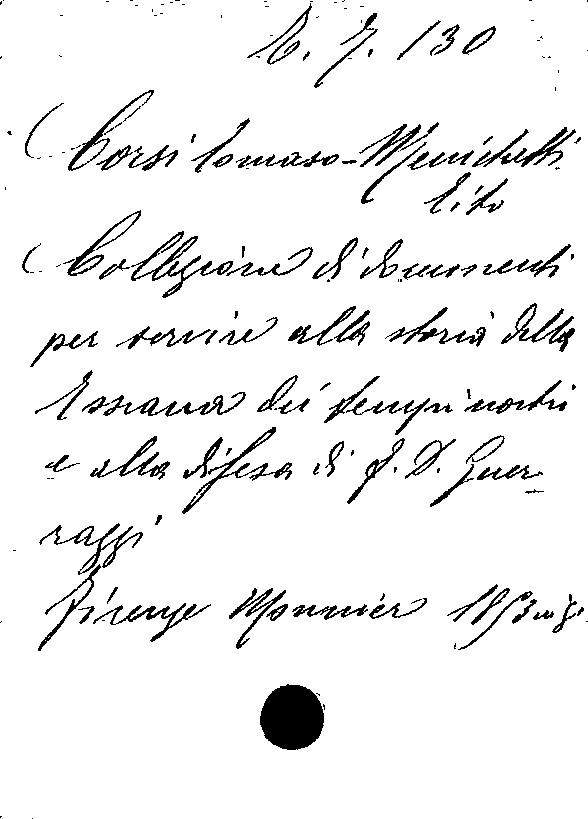 E. 7. 130
Corsi Tomaso - Menichetti
Tito
Collezione di documenti
per servire alla storia della
Toscana dei tempi nostri
e alla difesa di F. D. Guer-
razzi
Firenze Monnier 1853 in 8°